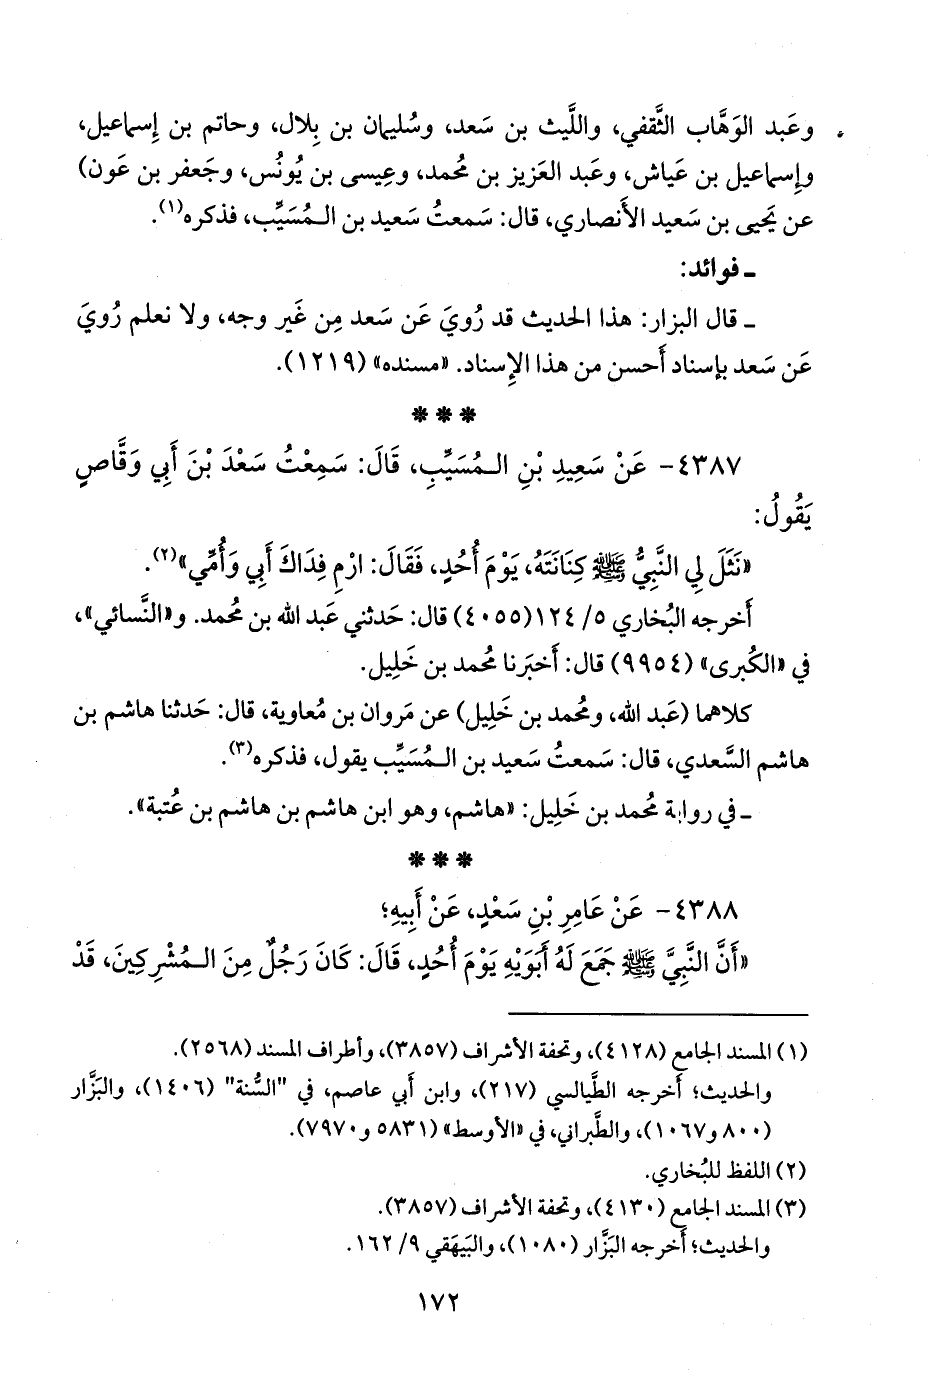 وعَبد الوَهَّاب الثَّقفي، واللَّيث بن سَعد، وسُليمان بن بِلال، وحاتم بن إِسماعيل،
وإِسماعيل بن عَياش، وعَبد العَزيز بن مُحمد، وعِيسى بن يُونُس، وجَعفر بن عَون)
عن يَحيى بن سَعيد الأَنصاري، قال: سَمعتُ سَعيد بن الـمُسَيِّب، فذكره(١).
ـ فوائد:
ـ قال البزار: هذا الحديث قد رُويَ عَن سَعد مِن غَير وجه، ولا نعلم رُويَ
عَن سَعد بإِسناد أَحسن من هذا الإِسناد. «مسنده» (١٢١٩).
***
٤٣٨٧- عَنْ سَعِيدِ بْنِ الـمُسَيِّبِ، قَالَ: سَمِعْتُ سَعْدَ بْنَ أَبِي وَقَّاصٍ
يَقُولُ:
«نَثَلَ لِي النَّبِيُّ ﷺ كِنَانَتَهُ، يَوْمَ أُحُدٍ، فَقَالَ: ارْمِ فِدَاكَ أَبِي وَأُمِّي»(٢).
أَخرجه البُخاري ٥/ ١٢٤(٤٠٥٥) قال: حَدثني عَبد الله بن مُحمد. و«النَّسائي»،
في «الكُبرى» (٩٩٥٤) قال: أَخبَرنا مُحمد بن خَليل.
كلاهما (عَبد الله، ومُحمد بن خَليل) عن مَروان بن مُعاوية، قال: حَدثنا هاشم بن
هاشم السَّعدي، قال: سَمعتُ سَعيد بن الـمُسَيِّب يقول، فذكره(٣).
ـ في رواية مُحمد بن خَليل: «هاشم، وهو ابن هاشم بن هاشم بن عُتبة».
***
٤٣٨٨- عَنْ عَامِرِ بْنِ سَعْدٍ، عَنْ أَبِيهِ؛
«أَنَّ النَّبِيَّ ﷺ جَمَعَ لَهُ أَبَوَيْهِ يَوْمَ أُحُدٍ، قَالَ: كَانَ رَجُلٌ مِنَ الـمُشْرِكِينَ، قَدْ
(١) المسند الجامع (٤١٢٨)، وتحفة الأشراف (٣٨٥٧)، وأطراف المسند (٢٥٦٨).
والحديث؛ أخرجه الطَّيالسي (٢١٧)، وابن أبي عاصم، في "السُّنة" (١٤٠٦)، والبَزَّار
(٨٠٠ و١٠٦٧)، والطَّبراني، في «الأوسط» (٥٨٣١ و٧٩٧٠).
(٢) اللفظ للبُخاري.
(٣) المسند الجامع (٤١٣٠)، وتحفة الأشراف (٣٨٥٧).
والحديث؛ أخرجه البَزَّار (١٠٨٠)، والبَيهَقي ٩/ ١٦٢.
١٧٢